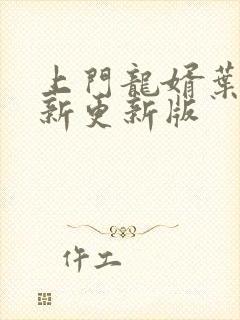 上門龍婿葉
新更新版
仵工